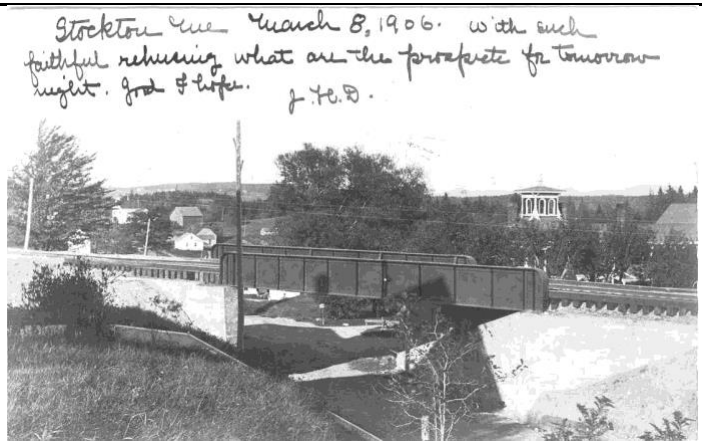 Stockton Me March 8, 1906. with such
faithful rehusing what are the prospete for tomorrow
night. Good I hope.
J. H. D.